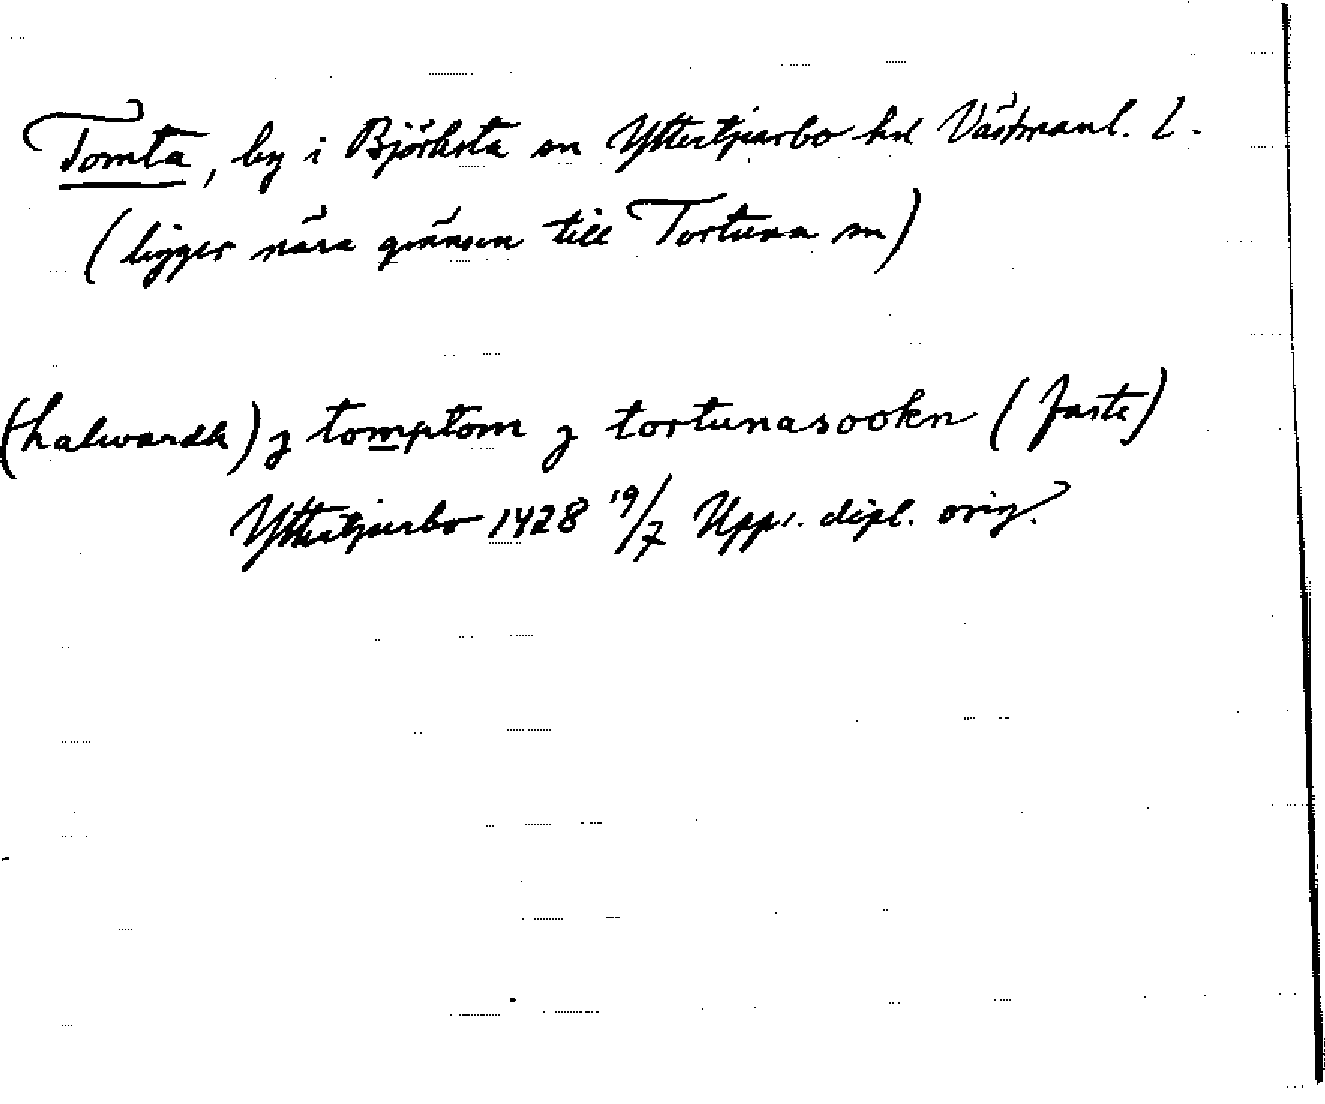 Tomta, by i Björksta sn Yttertjurbo hd Västmanl. L.
(ligger nära gränsen till Tortuna sn)
(halwardh) j tomptom j tortunasookn (faste)
Yttertjurbo 1428 19/7 Upps. dipl. orig.